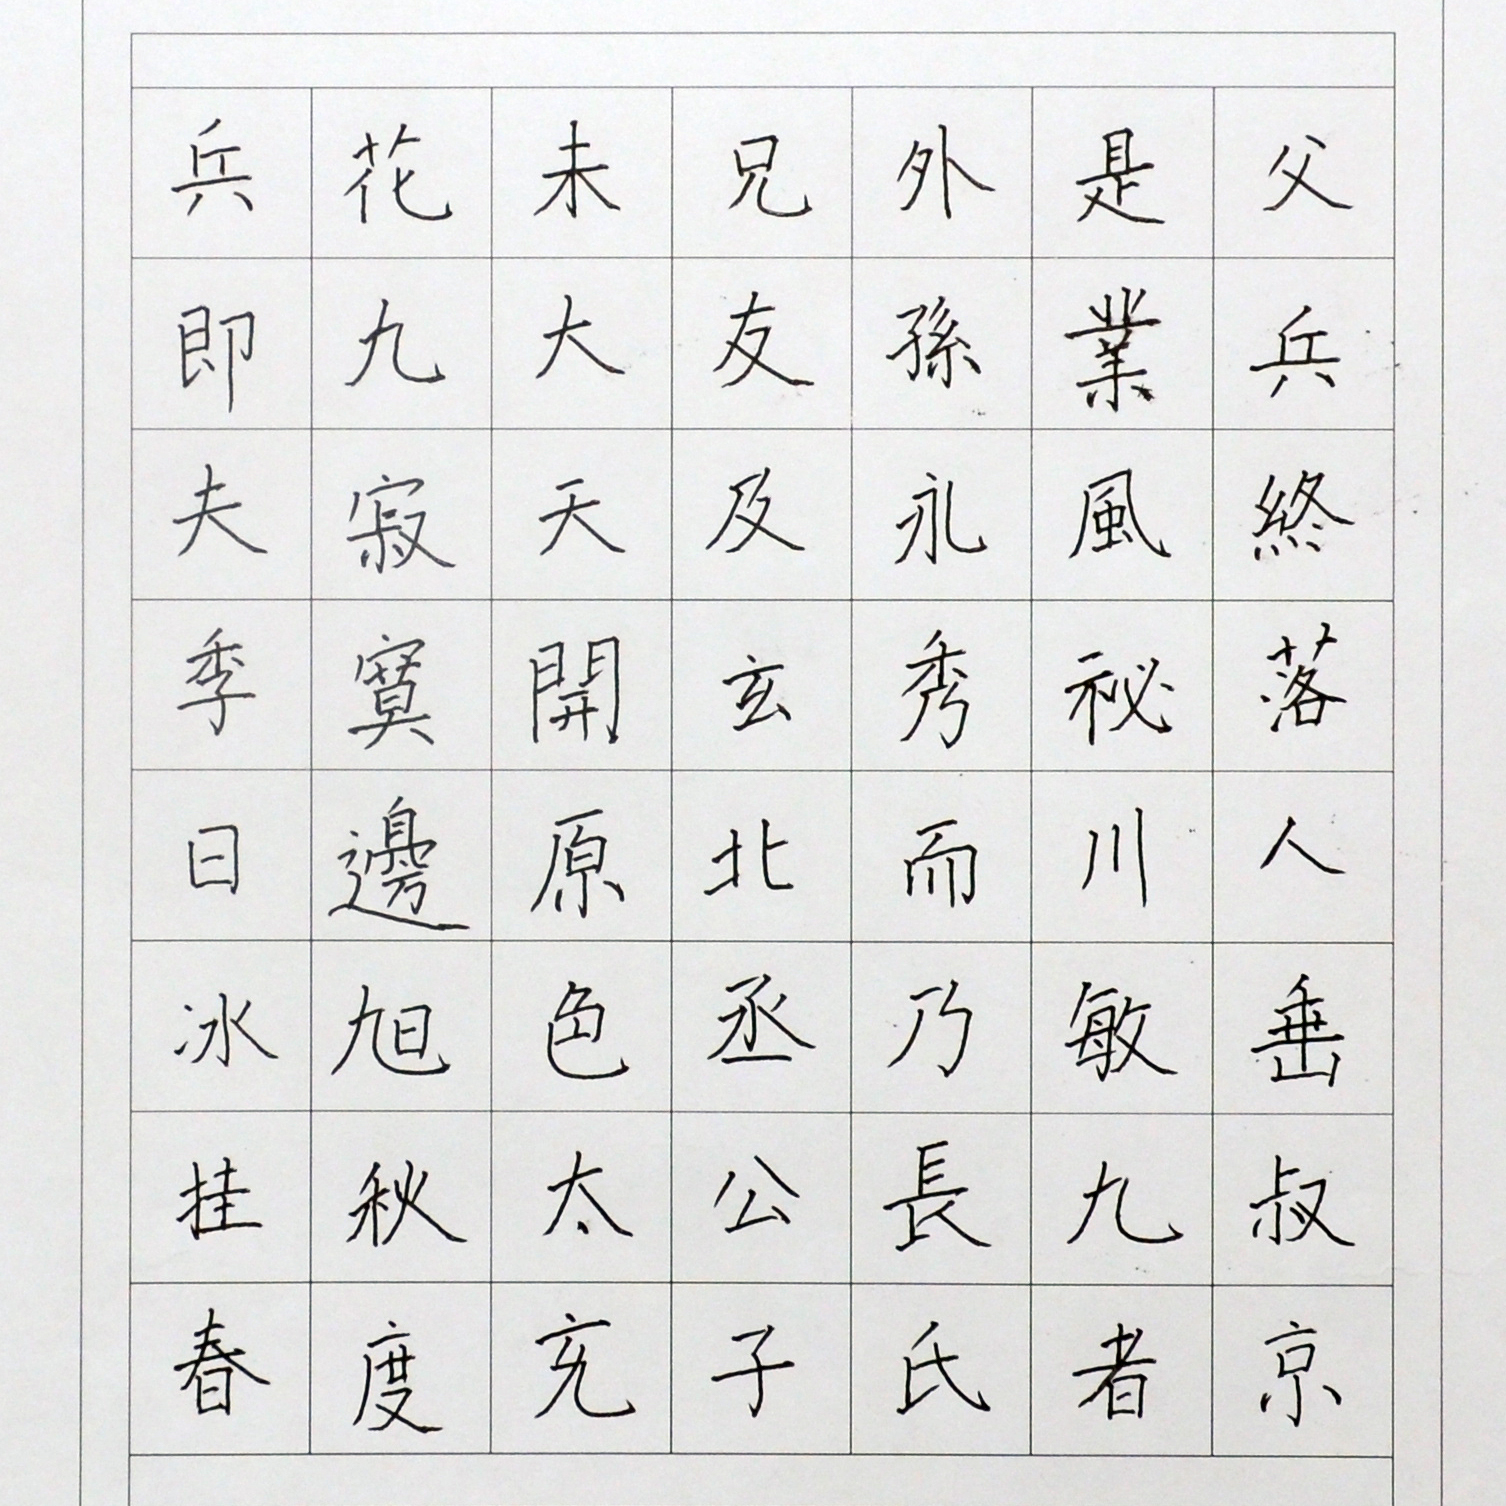 父兵終落人垂叔京
是業風祕川敏九者
外孫永秀而乃長氏
兄友及玄北丞公子
未大天開原色太充
花九寂寞邊旭秋度
兵即夫季日冰挂春